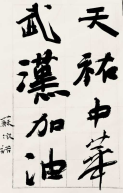 天祐中華
武漢加油
蘇